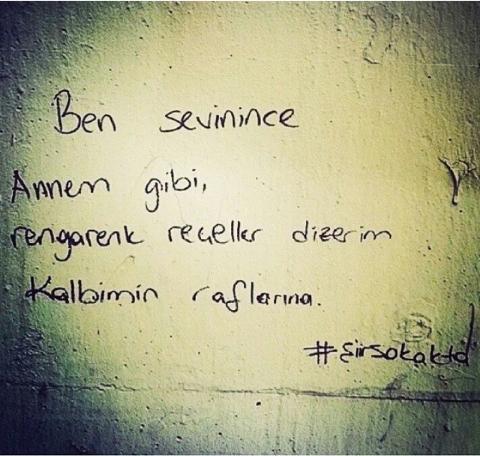 Ben sevinince
Annem gibi,
rengarenk reçeller dizerim
Kalbimin raflarına.
#şiirsokakta